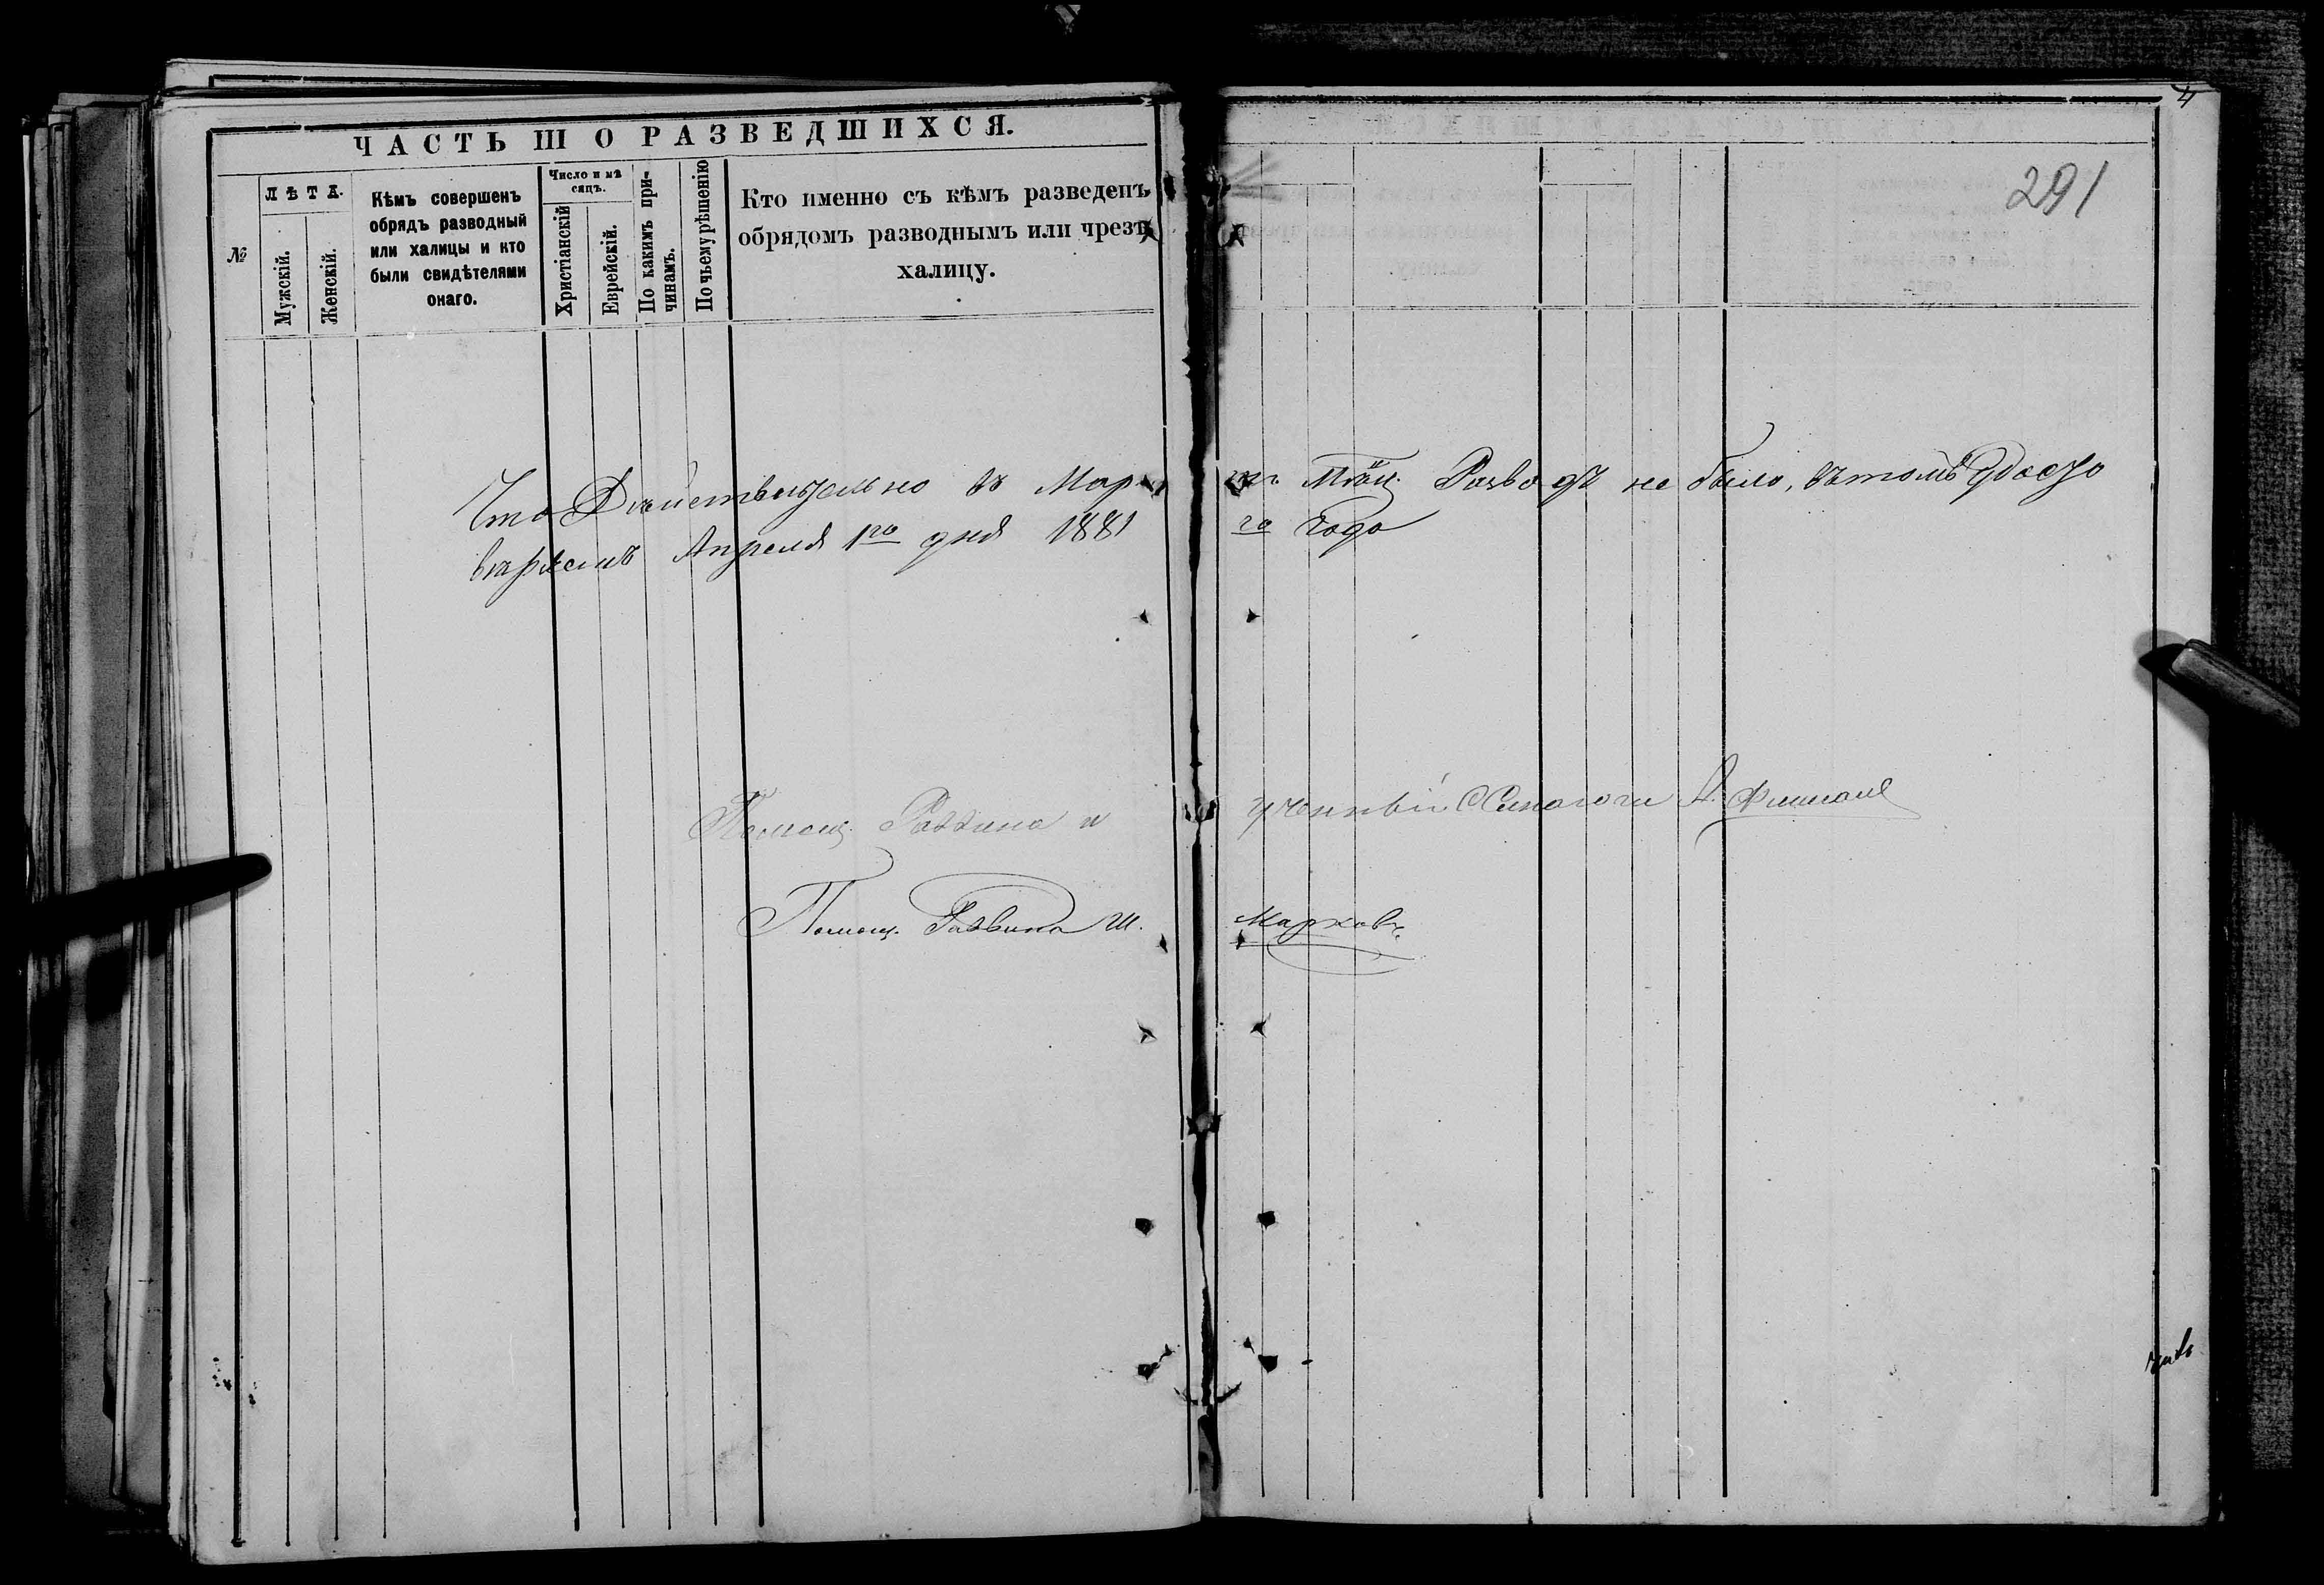 ЧАСТЬ III О РАЗВЕДШИХСЯ.
№
ЛѢТА.
Мужскій.
Женскій.
Кѣмъ совершенъ
обрядъ разводный
или халицы и кто
были свидѣтелями
онаго.
Число и мѣ
сяцъ.
Христіанскій
Еврейскій.
По какимъ при-
чинамъ.
По чьему рѣшенію
Кто именно съ кѣмъ разведенъ
обрядомъ разводнымъ или чрезъ
халицу.
4
291
Что Дѣйствительно въ Мар Мѣц. Разводъ не было, въ томъ Удосто
вѣряемъ Апреля 1го дня 1881 го Года
Помощ. Раввина и ученный Синагоги А.
Помощ. Раввина Ш. Марковъ